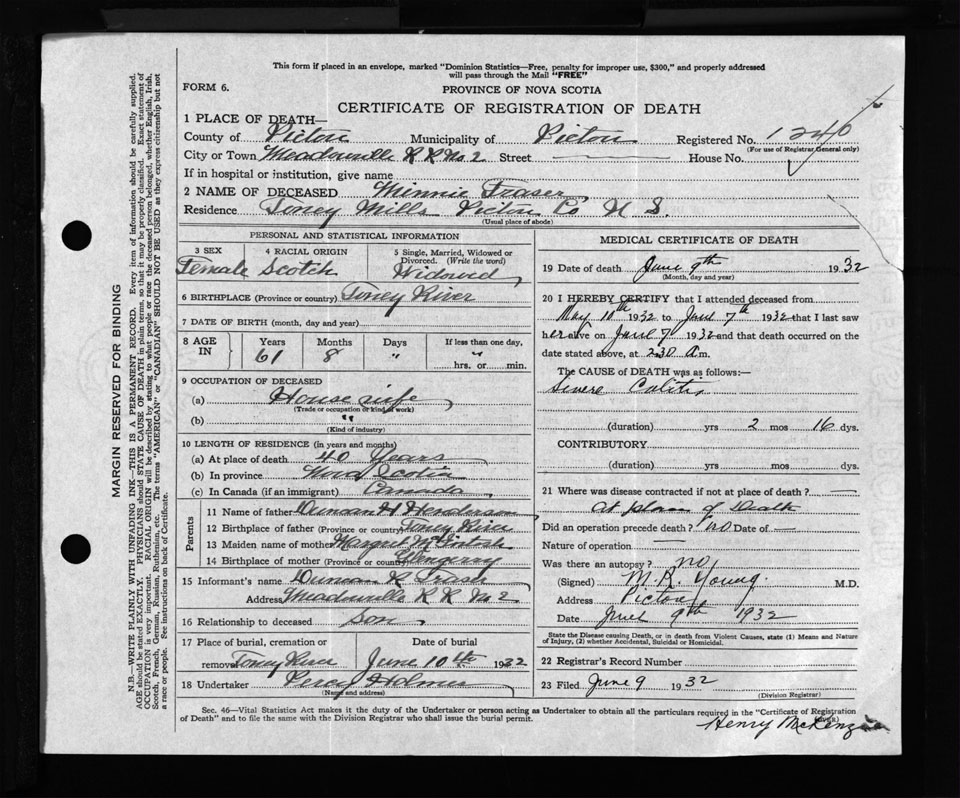 This form if placed in an envelope, marked "Dominion Statistics—Free, penalty for improper use, $300," and properly addressed
will pass through the Mail "FREE"
FORM 6.
PROVINCE OF NOVA SCOTIA
CERTIFICATE OF REGISTRATION OF DEATH
1 PLACE OF DEATH—
County of Pictou Municipality of Pictou Registered No. 1240
(For use of Registrar General only)
City or Town Meadowville R R No. 2 Street House No.
If in hospital or institution, give name
2 NAME OF DECEASED Minnie Fraser
Residence Toney Mills Pictou Co N S.
(Usual place of abode)
PERSONAL AND STATISTICAL INFORMATION
3 SEX Female
4 RACIAL ORIGIN Scotch
5 Single, Married, Widowed or Divorced. (Write the word) Widowed
6 BIRTHPLACE (Province or country) Toney River
7 DATE OF BIRTH (month, day and year)
8 AGE IN Years Months Days If less than one day,
61 8 " " hrs. or min.
9 OCCUPATION OF DECEASED
(a) House wife
(Trade or occupation or kind of work)
(b) "
(Kind of industry)
10 LENGTH OF RESIDENCE (in years and months)
(a) At place of death 40 Years
(b) In province Nova Scotia
(c) In Canada (if an immigrant) Canada
Parents
11 Name of father Duncan H Henderson
12 Birthplace of father (Province or country) Toney River
13 Maiden name of mother Margret McIntosh
14 Birthplace of mother (Province or country) Glengarry
15 Informant's name Duncan K Fraser
Address Meadowville R R No 2
16 Relationship to deceased Son
17 Place of burial, cremation or removal Toney River
Date of burial June 10th 1932
18 Undertaker Percy Holmes
(Name and address)
MEDICAL CERTIFICATE OF DEATH
19 Date of death June 9th 1932
(Month, day and year)
20 I HEREBY CERTIFY that I attended deceased from
May 10th 1932 to June 7th 1932 that I last saw
her alive on June 7 1932 and that death occurred on the
date stated above, at 2.30 a.m.
The CAUSE OF DEATH was as follows:—
Severe Colitis
(duration) yrs 2 mos 16 dys.
CONTRIBUTORY
(duration) yrs. mos. dys.
21 Where was disease contracted if not at place of death? —
At place of Death
Did an operation precede death? no Date of —
Nature of operation —
Was there an autopsy? no
(Signed) M. R. Young. M.D.
Address Pictou
Date June 9th 1932
State the Disease causing Death, or in death from Violent Causes, state (1) Means and Nature
of Injury, (2) whether Accidental, Suicidal or Homicidal.
22 Registrar's Record Number
23 Filed June 9 1932
(Division Registrar)
Henry McKenzie
Sec. 46—Vital Statistics Act makes it the duty of the Undertaker or person acting as Undertaker to obtain all the particulars required in the "Certificate of Registration
of Death" and to file the same with the Division Registrar who shall issue the burial permit.
(OVER)
MARGIN RESERVED FOR BINDING
N.B.—WRITE PLAINLY WITH UNFADING INK—THIS IS A PERMANENT RECORD. Every item of information should be carefully supplied.
AGE should be stated EXACTLY. PHYSICIANS should STATE CAUSE OF DEATH in plain terms, so that it may be properly classified. Exact statement of
OCCUPATION is very important. RACIAL ORIGIN will be described by stating to what people or race the deceased person belonged, whether English, Irish,
Scotch, French, German, Russian, Ruthenian, etc. The terms "AMERICAN" or "CANADIAN" SHOULD NOT BE USED as they express citizenship but not
a race or people. See instructions on back of Certificate.